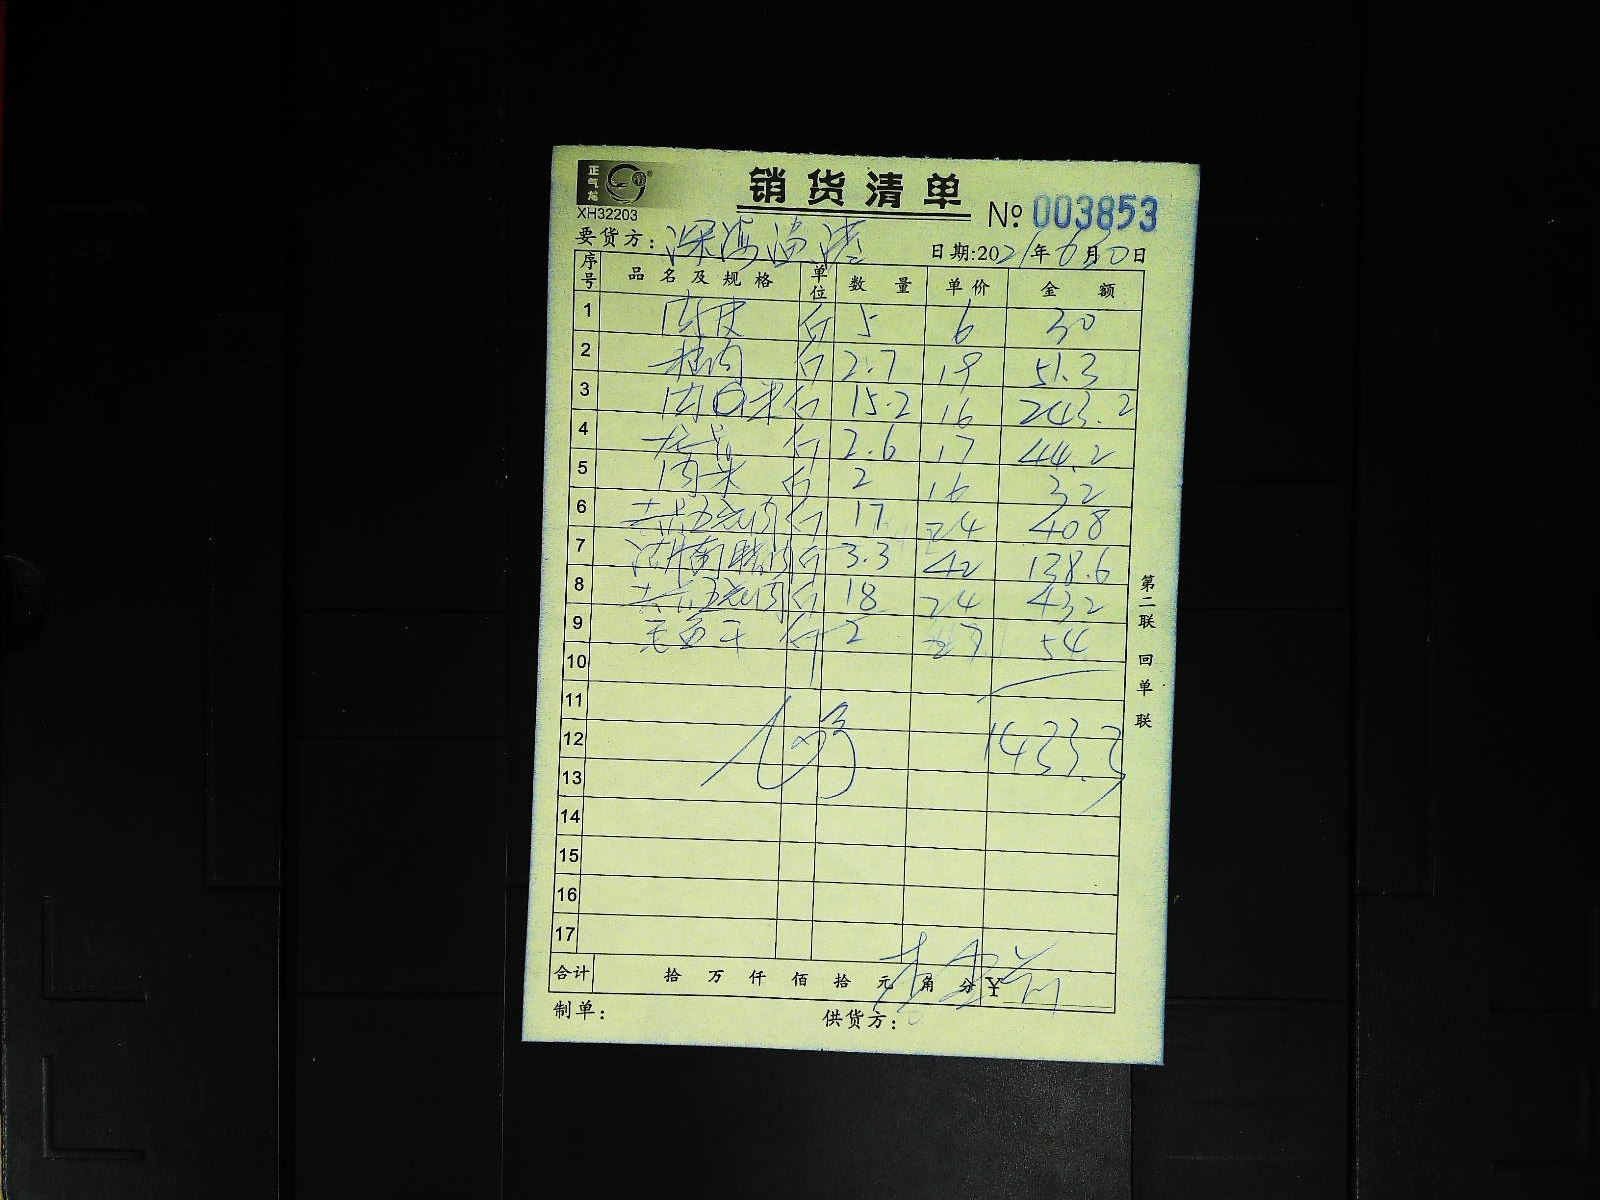 正气龙
XH32203
销货清单
№ 003853
要货方: 深海渔港 日期:2021年6月30日
序号 品名及规格 单位 数量 单价 金额
1 肉皮 斤 5 6 30
2 斤 2.7 19 51.3
3 斤 15.2 16 243.2
4 斤 2.6 17 44.2
5 肉米 斤 2 16 32
6 去皮五花肉 斤 17 24 408
7 湖南腊肉 斤 3.3 42 138.6
8 去皮五花肉 斤 18 24 432
9 斤 2 27 54
10
11
12 1433.3
13
14
15
16
17
合计 拾 万 仟 佰 拾 元 角 分 ¥
制单: 供货方:
第二联 回单联